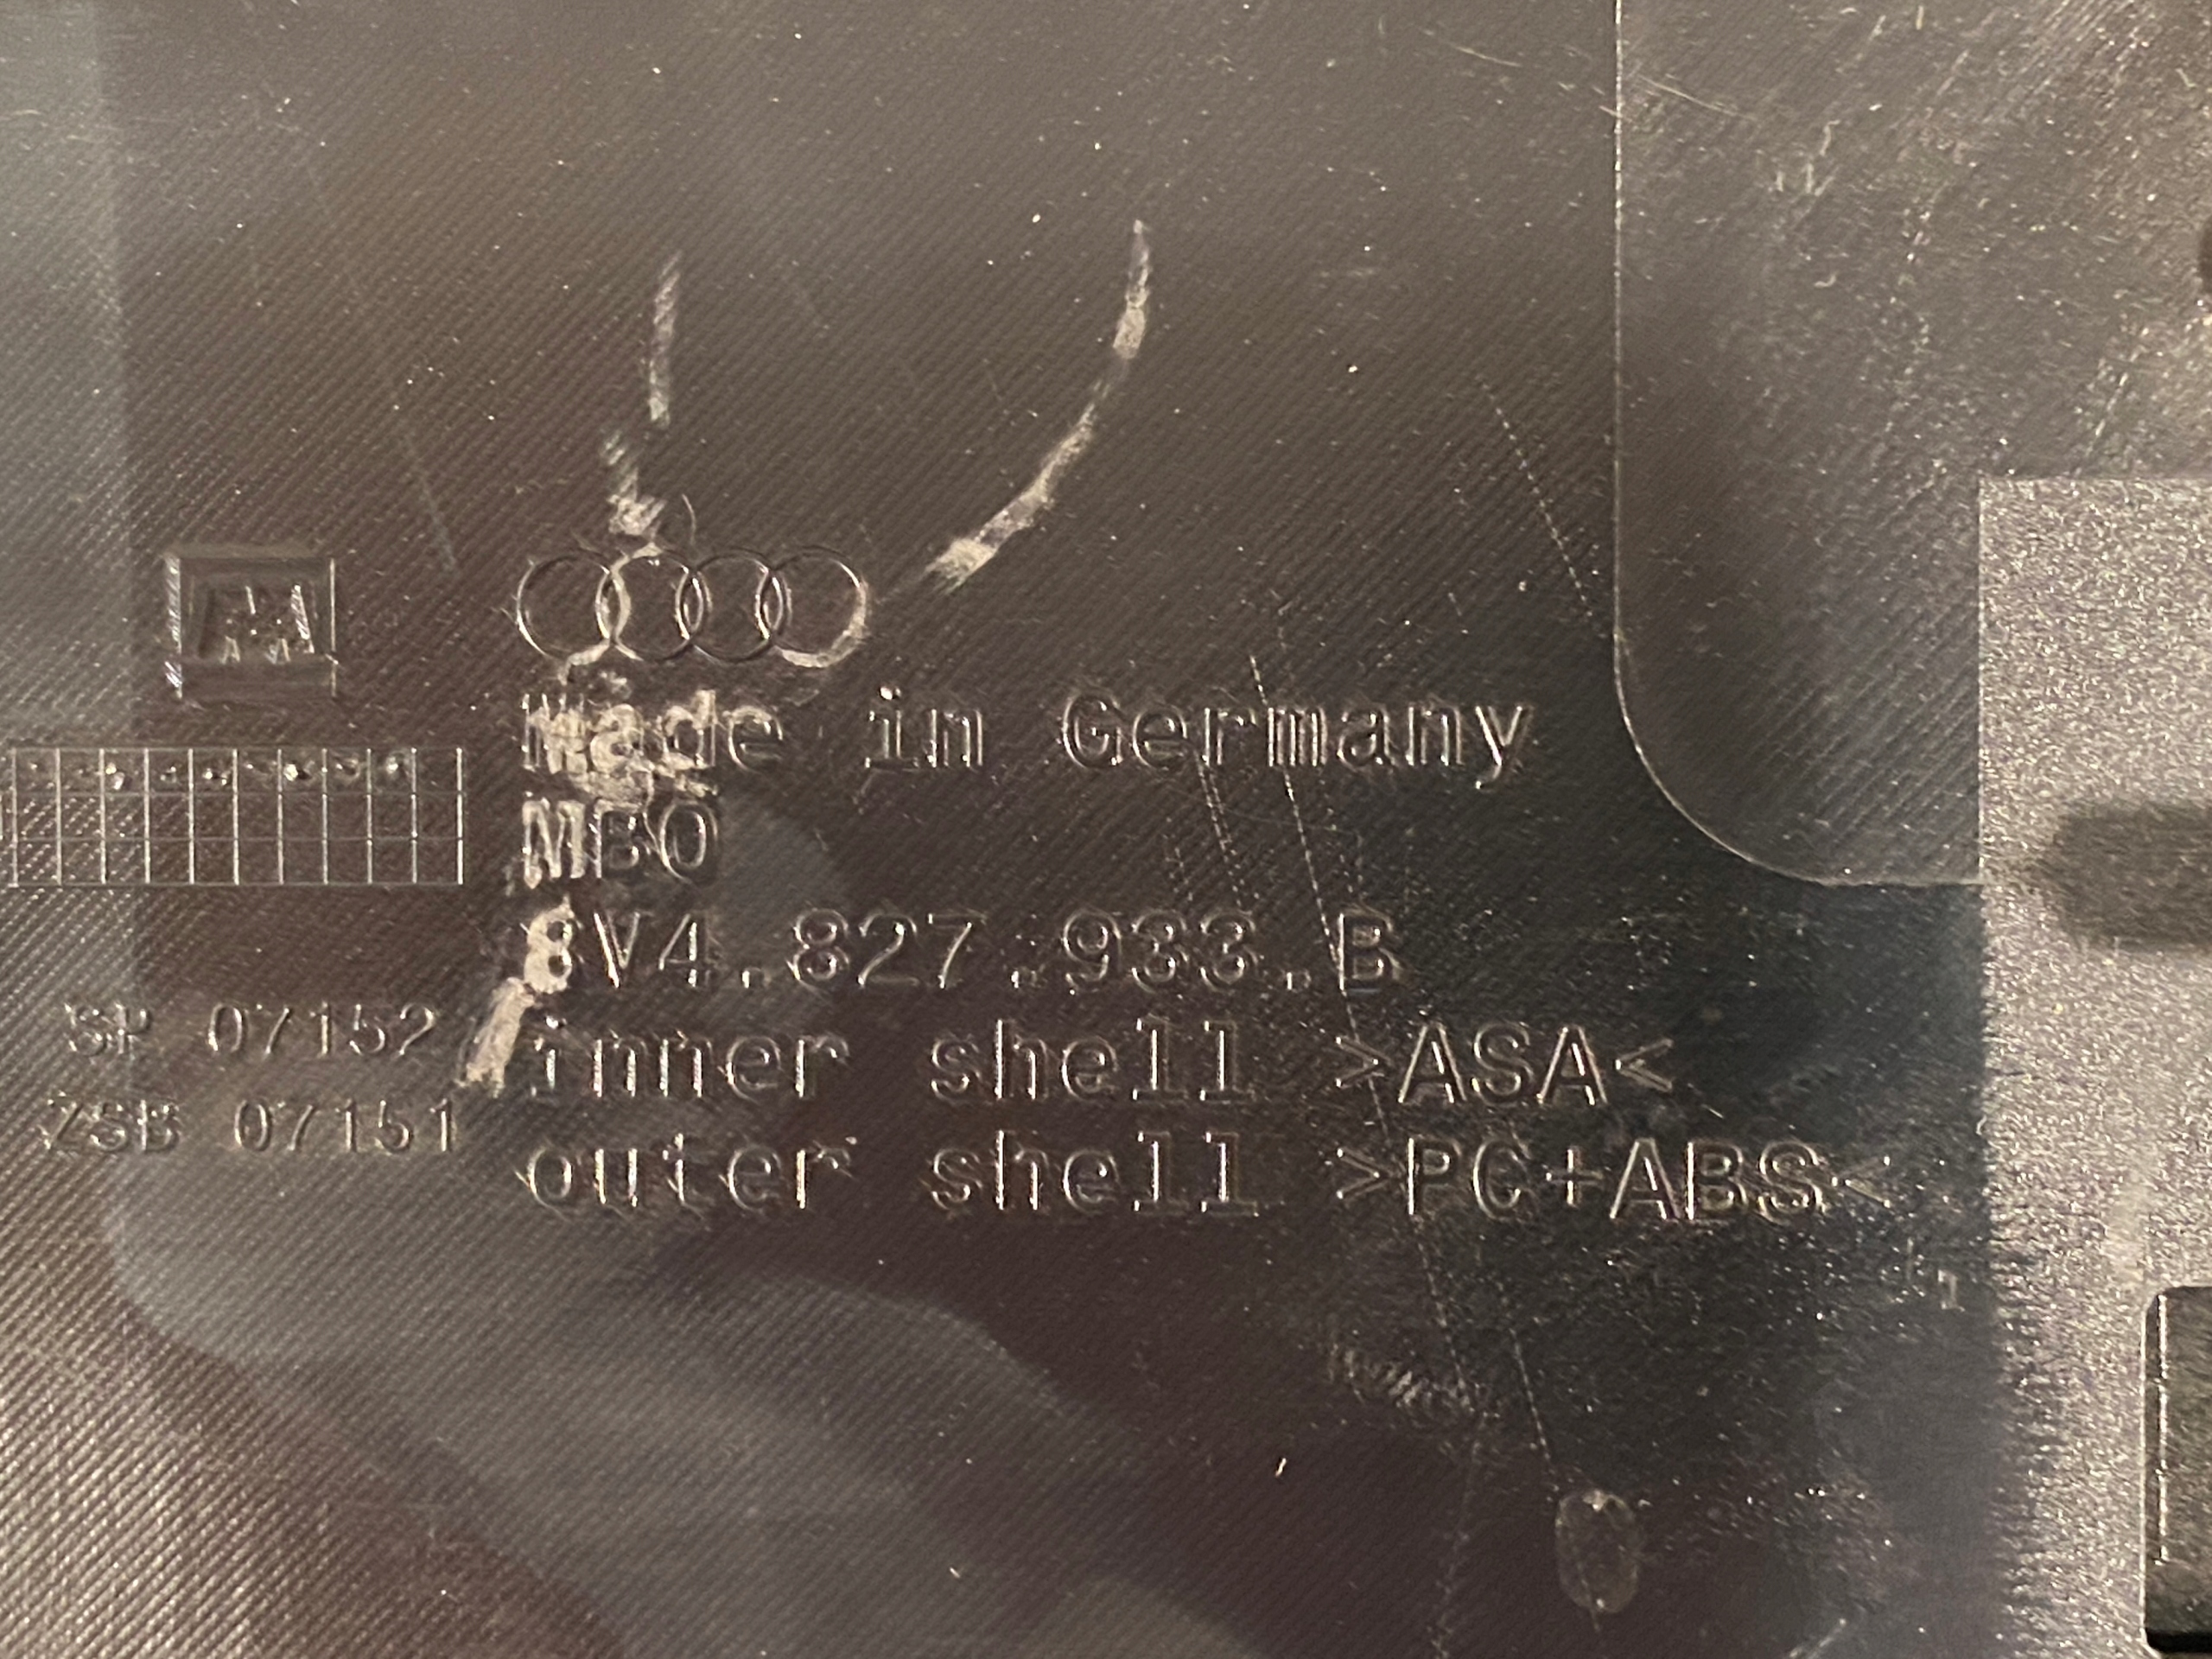 Made in Germany
MBO
8V4.827.933.B
inner shell >ASA<
outer shell >PC+ABS<
SP 07152
ZSB 07151